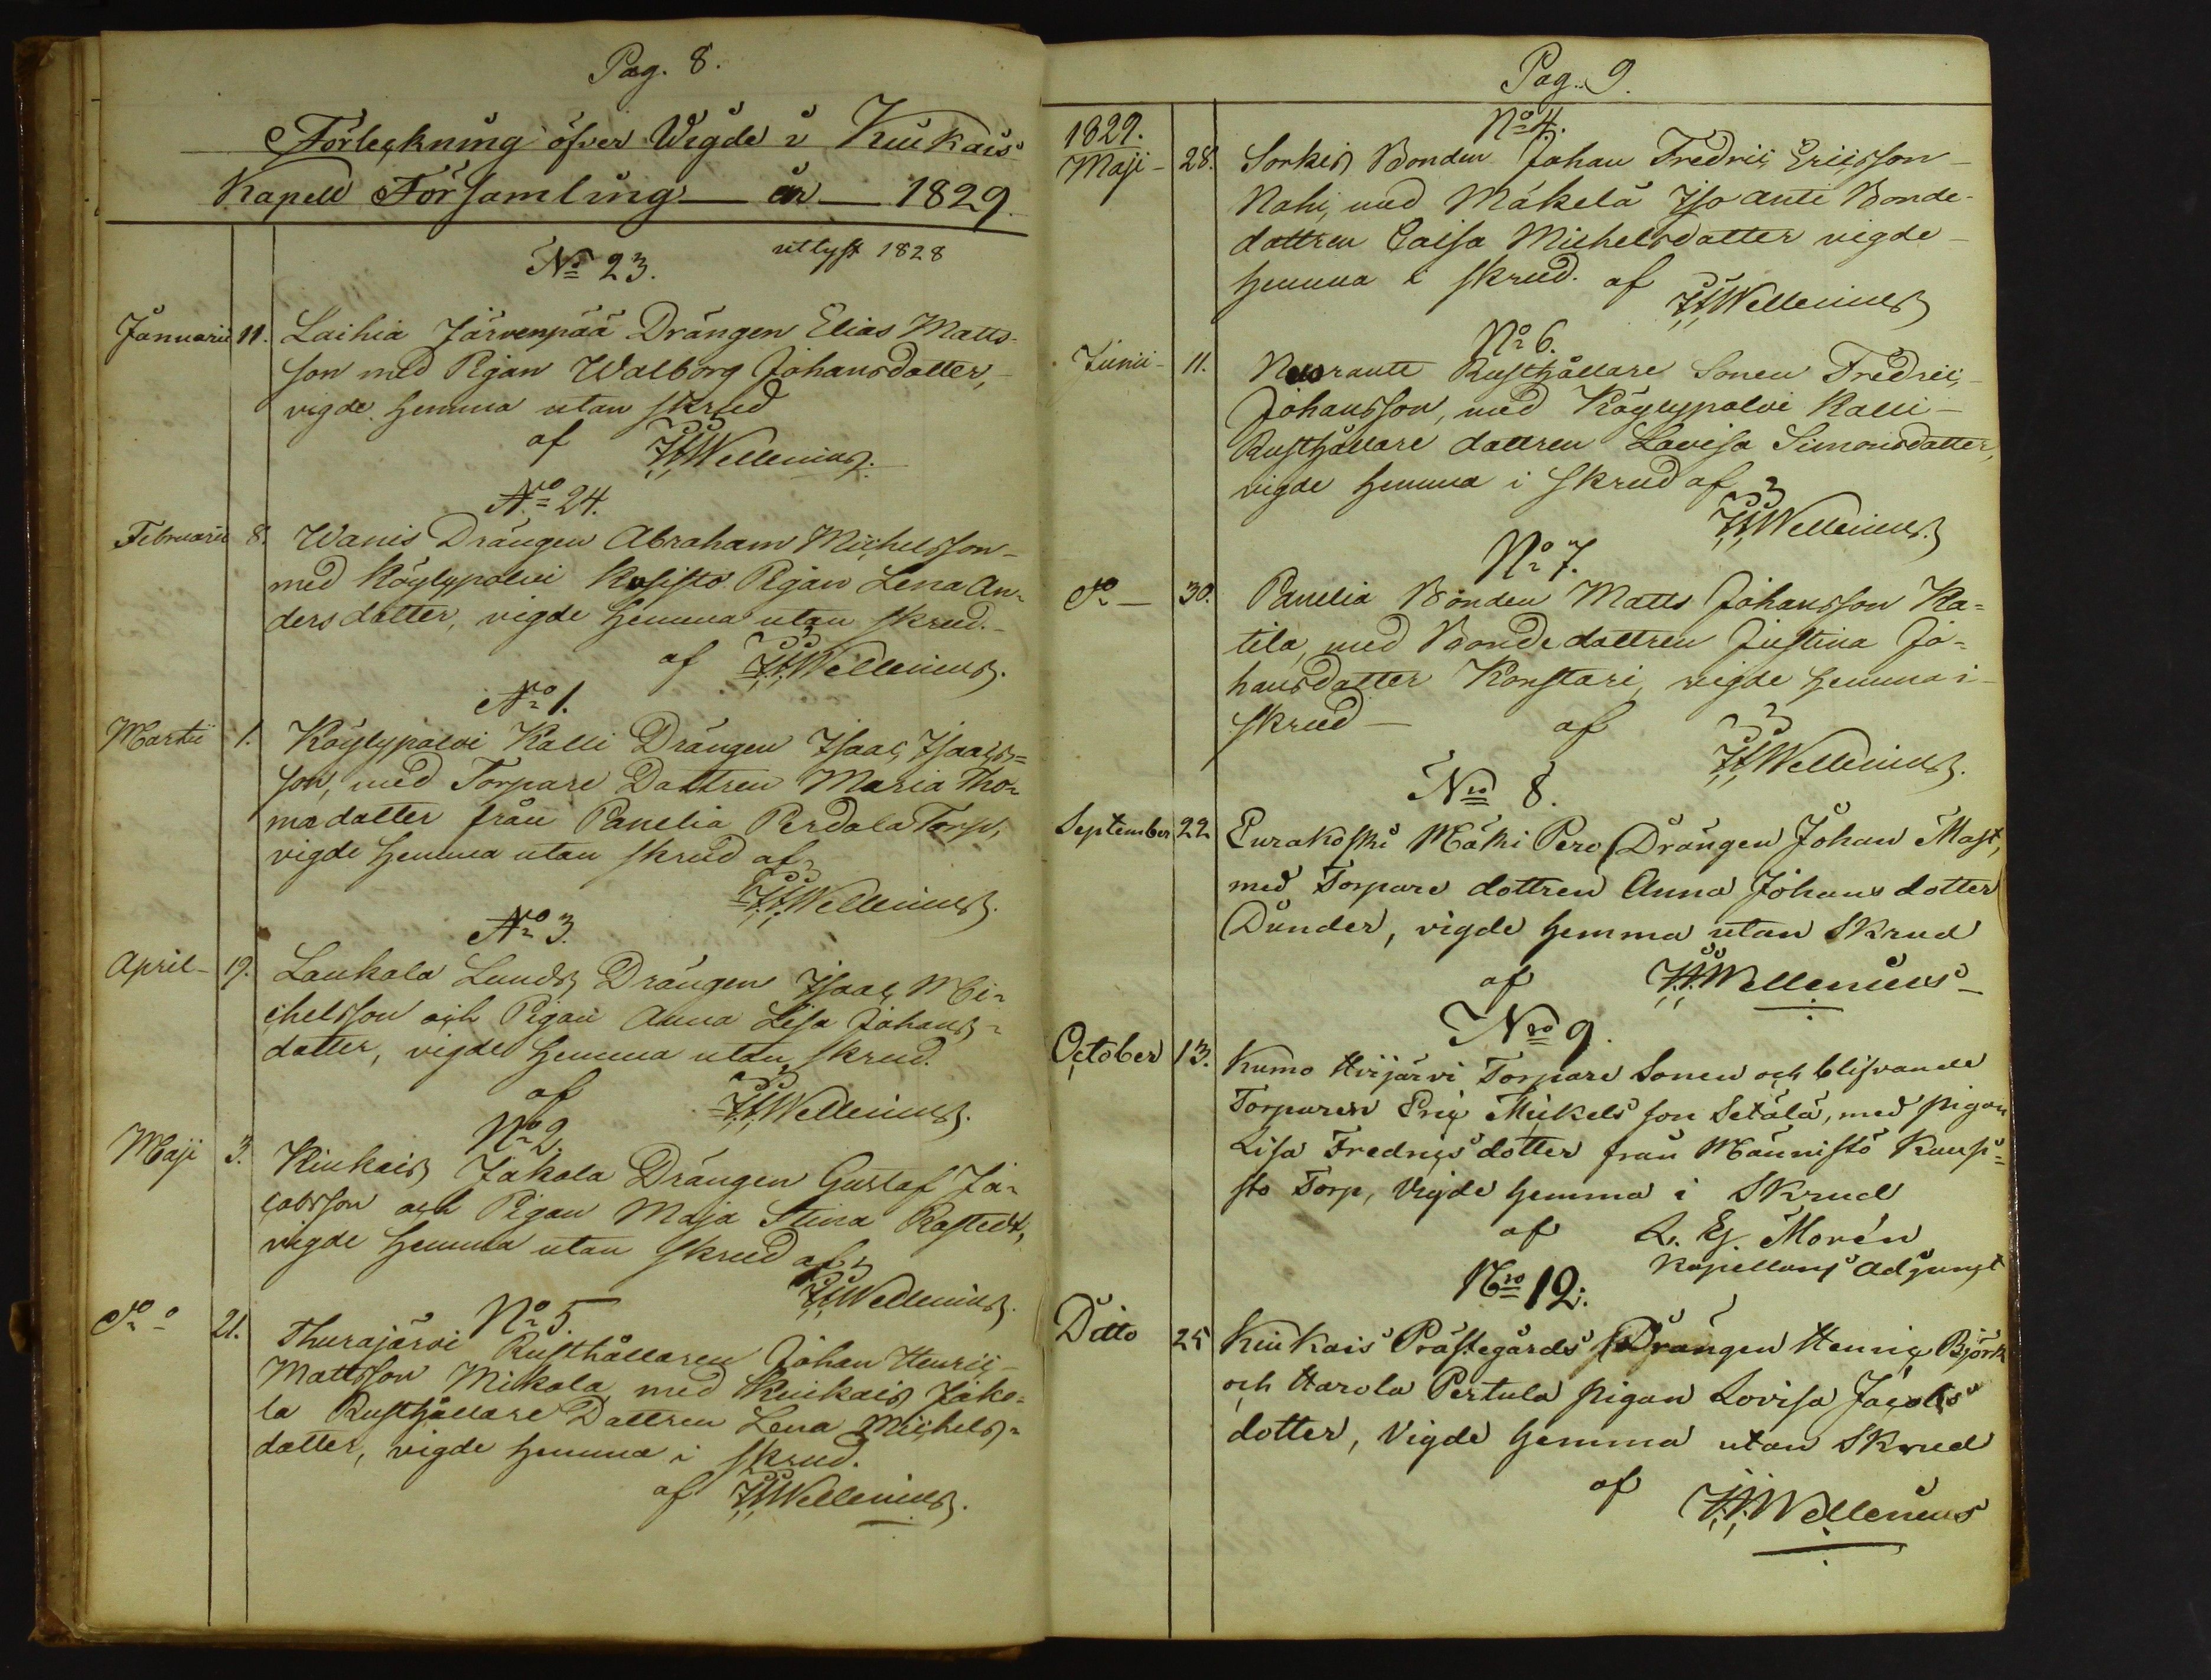 Pag. 8.
Förteckning öfver Wigde i Kiukais
Kapell Församling år 1829.
utlyst 1828
No 23.
Januarii 11. Laihia Järvenpää Drängen Elias Matts-
son med Pigan Walborg Johansdotter,
vigde hemma utan skrud
af J. H. Wellenius.
No 24.
Februarii 8. Wanis Drängen Abraham Michelsson
med Köylypolvi Kosisto Pigan Lena An-
dersdotter, vigde hemma utan skrud.
af J. H. Wellenius.
No 1.
Martii 1. Köylypolvi Kalli Drängen Isaac Isaacs=
son, med Torpare Dottren Maria Tho-
madotter från Panelia Perdola Torp,
vigde hemma utan skrud af
J. H. Wellenius.
No 3.
April 19. Laukola Lunds Drängen Isaac Mi-
chelsson och Pigan Anna Lisa Johans-
dotter, vigde hemma utan skrud.
af J. H. Wellenius.
No 2.
Maji 3. Kiukais Jakola Drängen Gustaf Ja-
cobsson och Pigan Maja Stina Rostedt,
vigde hemma utan skrud af
J. H. Wellenius.
No 5.
Do 21. Thurajärvi Rusthållaren Johan Henric
Mattsson Mikola med Kiukais Jako-
la Rusthållare Dottren Lena Michels-
dotter, vigde hemma i skrud.
af J. H. Wellenius.
Pag. 9.
1829.
No 4.
Maji 28. Sorkis Bonden Johan Fredric Ericsson
Nahi, med Mäkelä Iso anti Bonde-
dottren Caisa Michelsdotter vigde
hemma i skrud. af
J. H. Wellenius
No 6.
Junii 11. Nuoranti Rusthållare Sonen Fredric
Johansson, med Köylypolvi Kalli
Rusthållare dottren Lovisa Simonsdotter,
vigde hemma i skrud af
J. H. Wellenius.
No 7.
Do 30. Panelia Bonden Matts Johansson Ka=
tila, med Bondedottren Justina Jo-
hansdotter Konstari, vigde hemma i
skrud af
J. H. Wellenius.
No 8.
September 22 Eurakoski Mäki Pero Drängen Johan Mast,
med Torpare dottren Anna Johans dotter
Dunder, vigde hemma utan Skrud
af J. H. Wellenius
No 9.
October 13. Kumo Hvijärvi Torpare Sonen och blifvande
Torparen Eric Mickels son Setälä, med pigan
Lisa Fredrics dotter från Männistö Kauis=
sto Torp, Vigde hemma i Skrud
af L. Ej. Morén
Kapellans Adjungt
No 12.
Ditto 25 Kiukais Prästegårds Drängen Henric Björk
och Harola Pertula pigan Lovisa Jacobs
dotter, Vigde hemma utan Skrud
af J. H. Wellenius